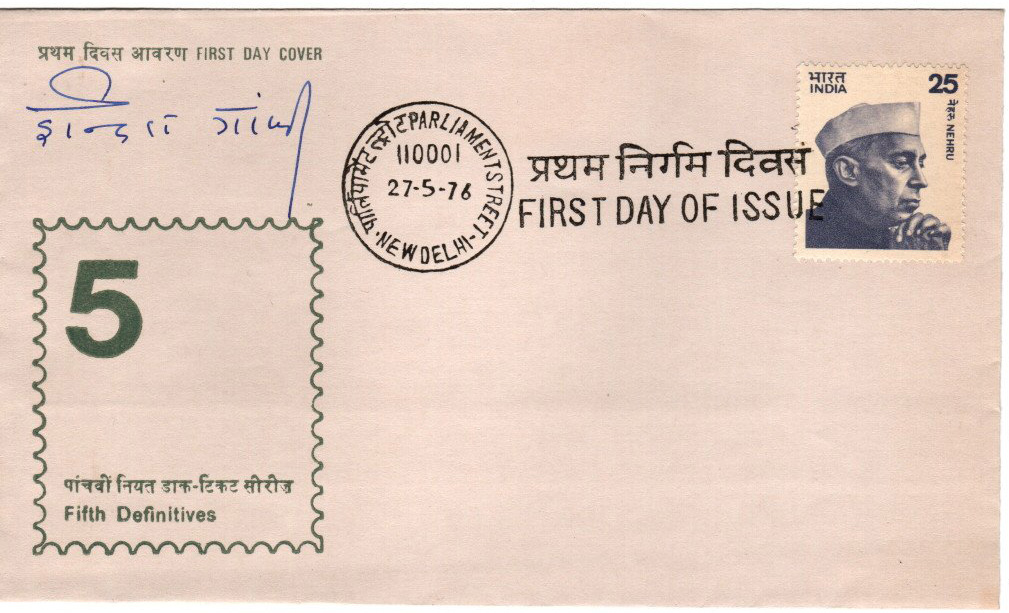 प्रथम दिवस आवरण FIRST DAY COVER
इन्दिरा गांधी
पार्लियामेंट स्ट्रीट PARLIAMENT STREET
110001
27-5-76
NEW DELHI
प्रथम निर्गम दिवस
FIRST DAY OF ISSUE
भारत 25
INDIA
नेहरू NEHRU
5
पांचवीं नियत डाक-टिकट सीरीज़
Fifth Definitives